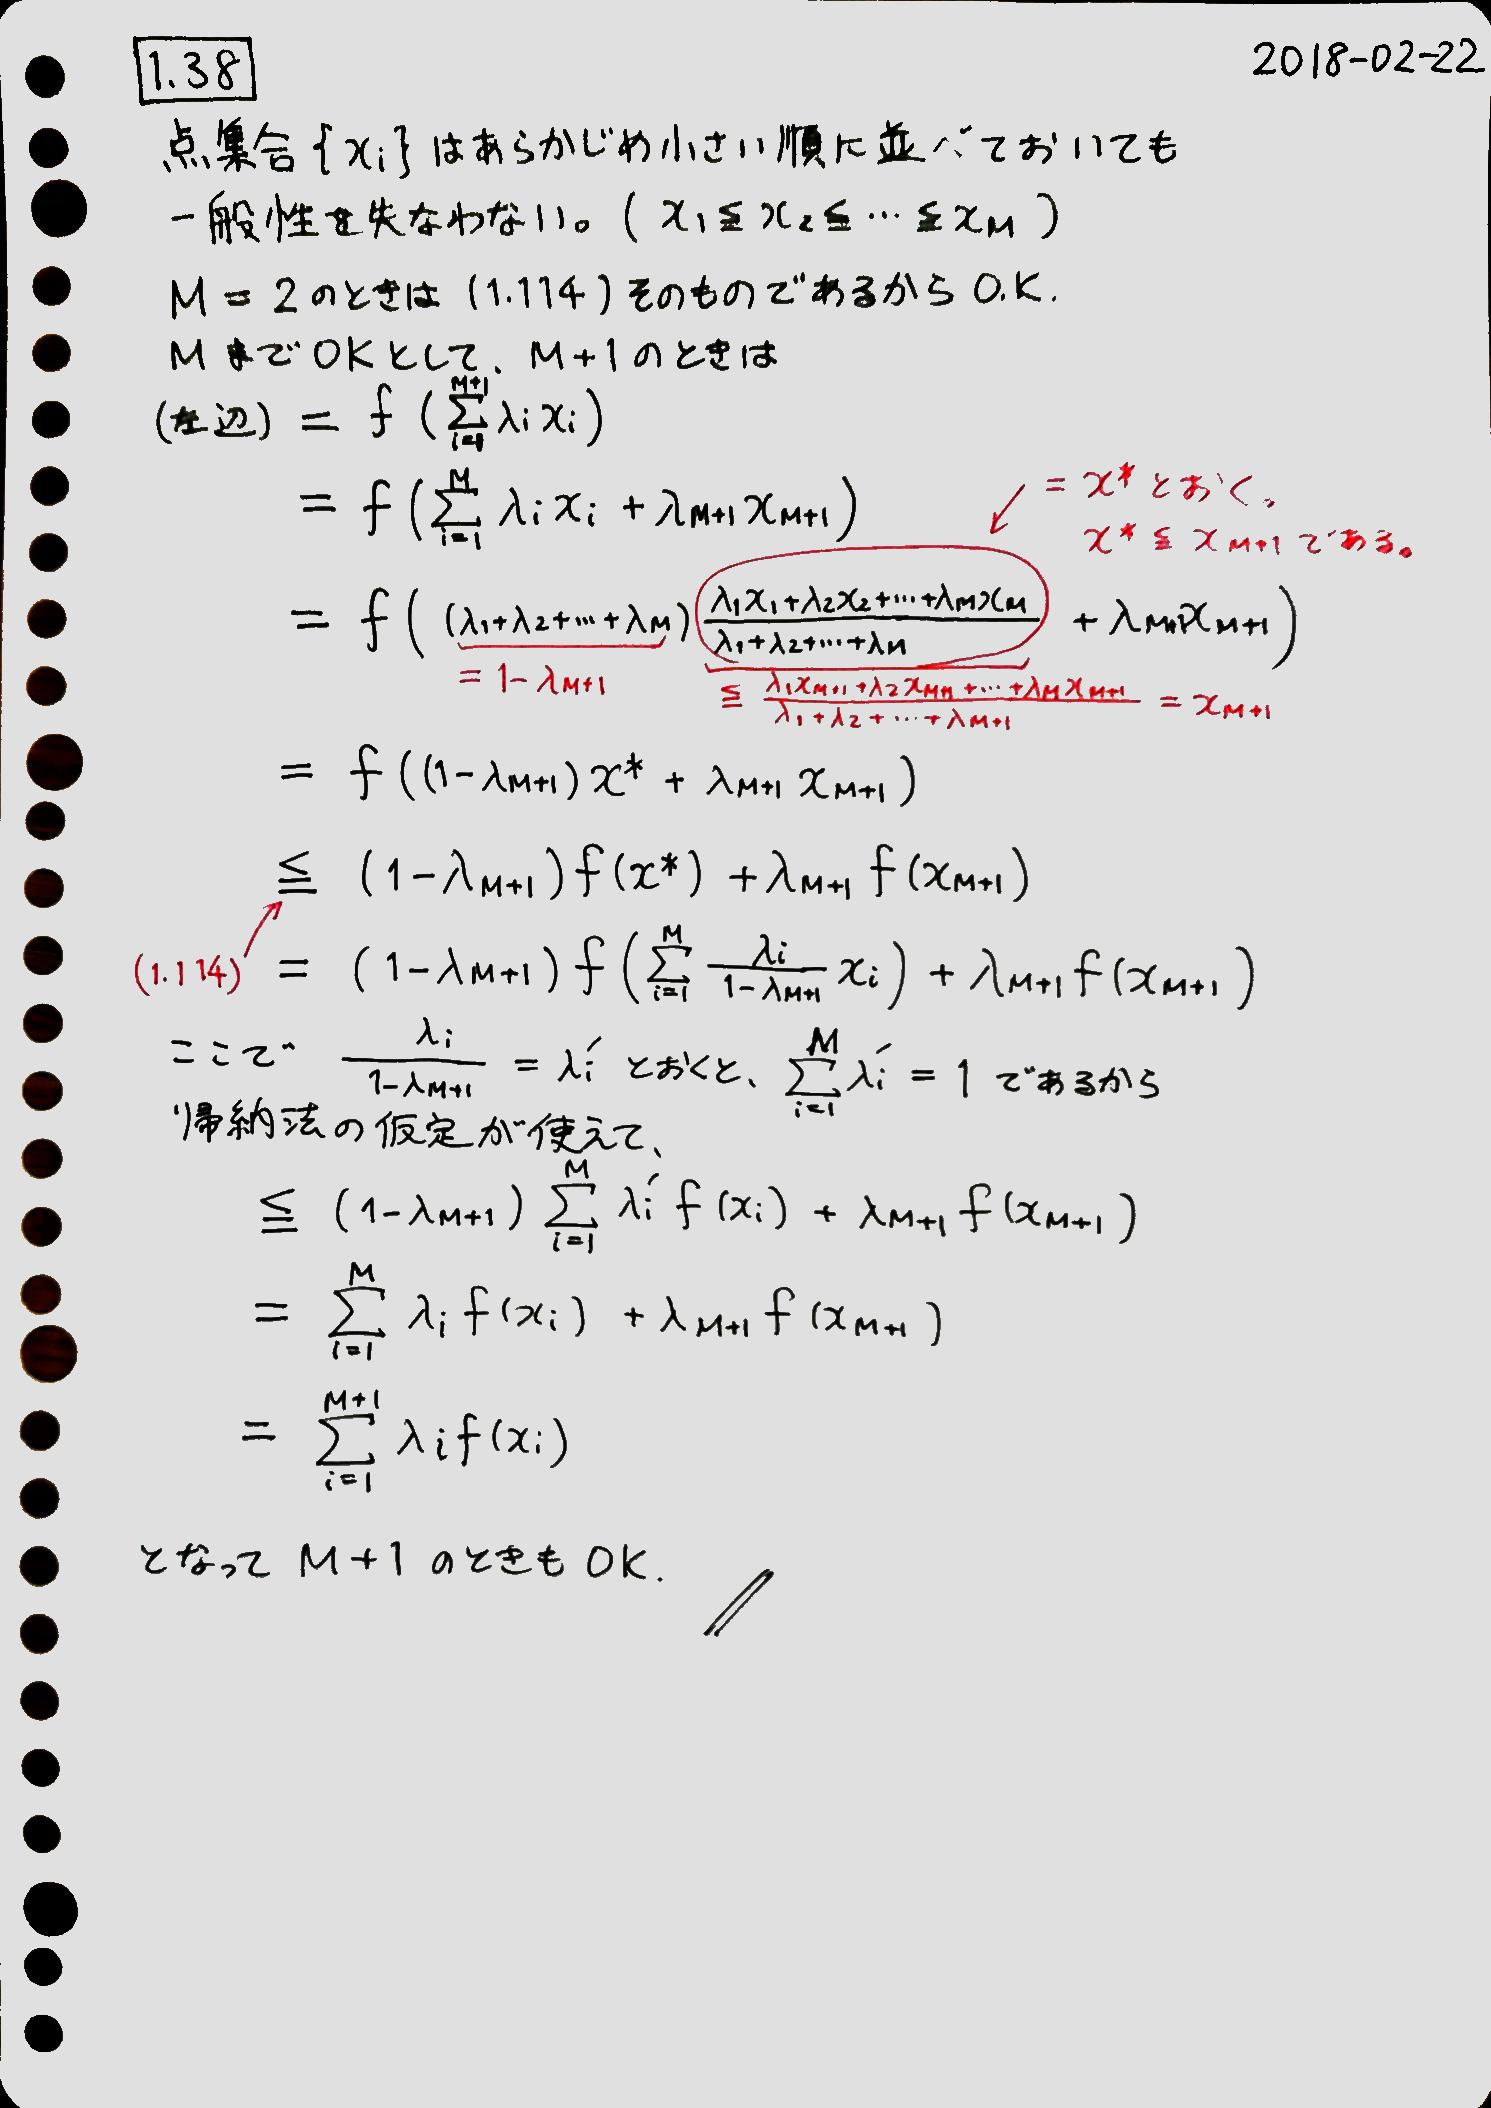 1.38
2018-02-22
点集合{xi}はあらかじめ小さい順に並べておいても
一般性を失なわない。( x1 ≦ x2 ≦ … ≦ xM )
M = 2 のときは (1.114) そのものであるから O.K.
M まで OK として、M+1 のときは
(左辺) = f ( Σ_{i=1}^{M+1} λi xi )
= f ( Σ_{i=1}^{M} λi xi + λM+1 xM+1 )
= x* とおく。
x* ≦ xM+1 である。
= f ( (λ1+λ2+…+λM) (λ1x1+λ2x2+…+λMxM)/(λ1+λ2+…+λM) + λM+1 xM+1 )
= 1-λM+1
≦ (λ1xM+1+λ2xM+1+…+λMxM+1)/(λ1+λ2+…+λM+1) = xM+1
= f ((1-λM+1) x* + λM+1 xM+1 )
≦ (1-λM+1) f(x*) + λM+1 f(xM+1)
(1.114)
= (1-λM+1) f ( Σ_{i=1}^{M} λi/(1-λM+1) xi ) + λM+1 f(xM+1)
ここで λi/(1-λM+1) = λi′ とおくと、Σ_{i=1}^{M} λi′ = 1 であるから
帰納法の仮定が使えて、
≦ (1-λM+1) Σ_{i=1}^{M} λi′ f(xi) + λM+1 f(xM+1)
= Σ_{i=1}^{M} λi f(xi) + λM+1 f(xM+1)
= Σ_{i=1}^{M+1} λi f(xi)
となって M+1 のときも OK.